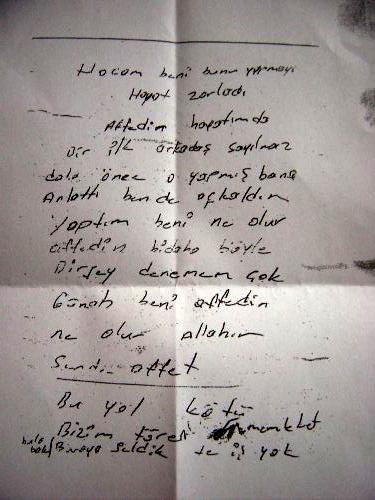 Hocam beni bunu yapmayı
Hayat zorladı
Affedin hayatımda
Bir ilk arkadaş sayılmaz
daha önce o yapmış bana
Anlattı bende aç kaldım
Yaptım beni ne olur
affedin bidaha böyle
Birşey denemem çok
Günah beni affedin
ne olur Allahım
Sende affet
Bu yol kötü
Bizim töresi memleket
Buraya geldik te iş yok